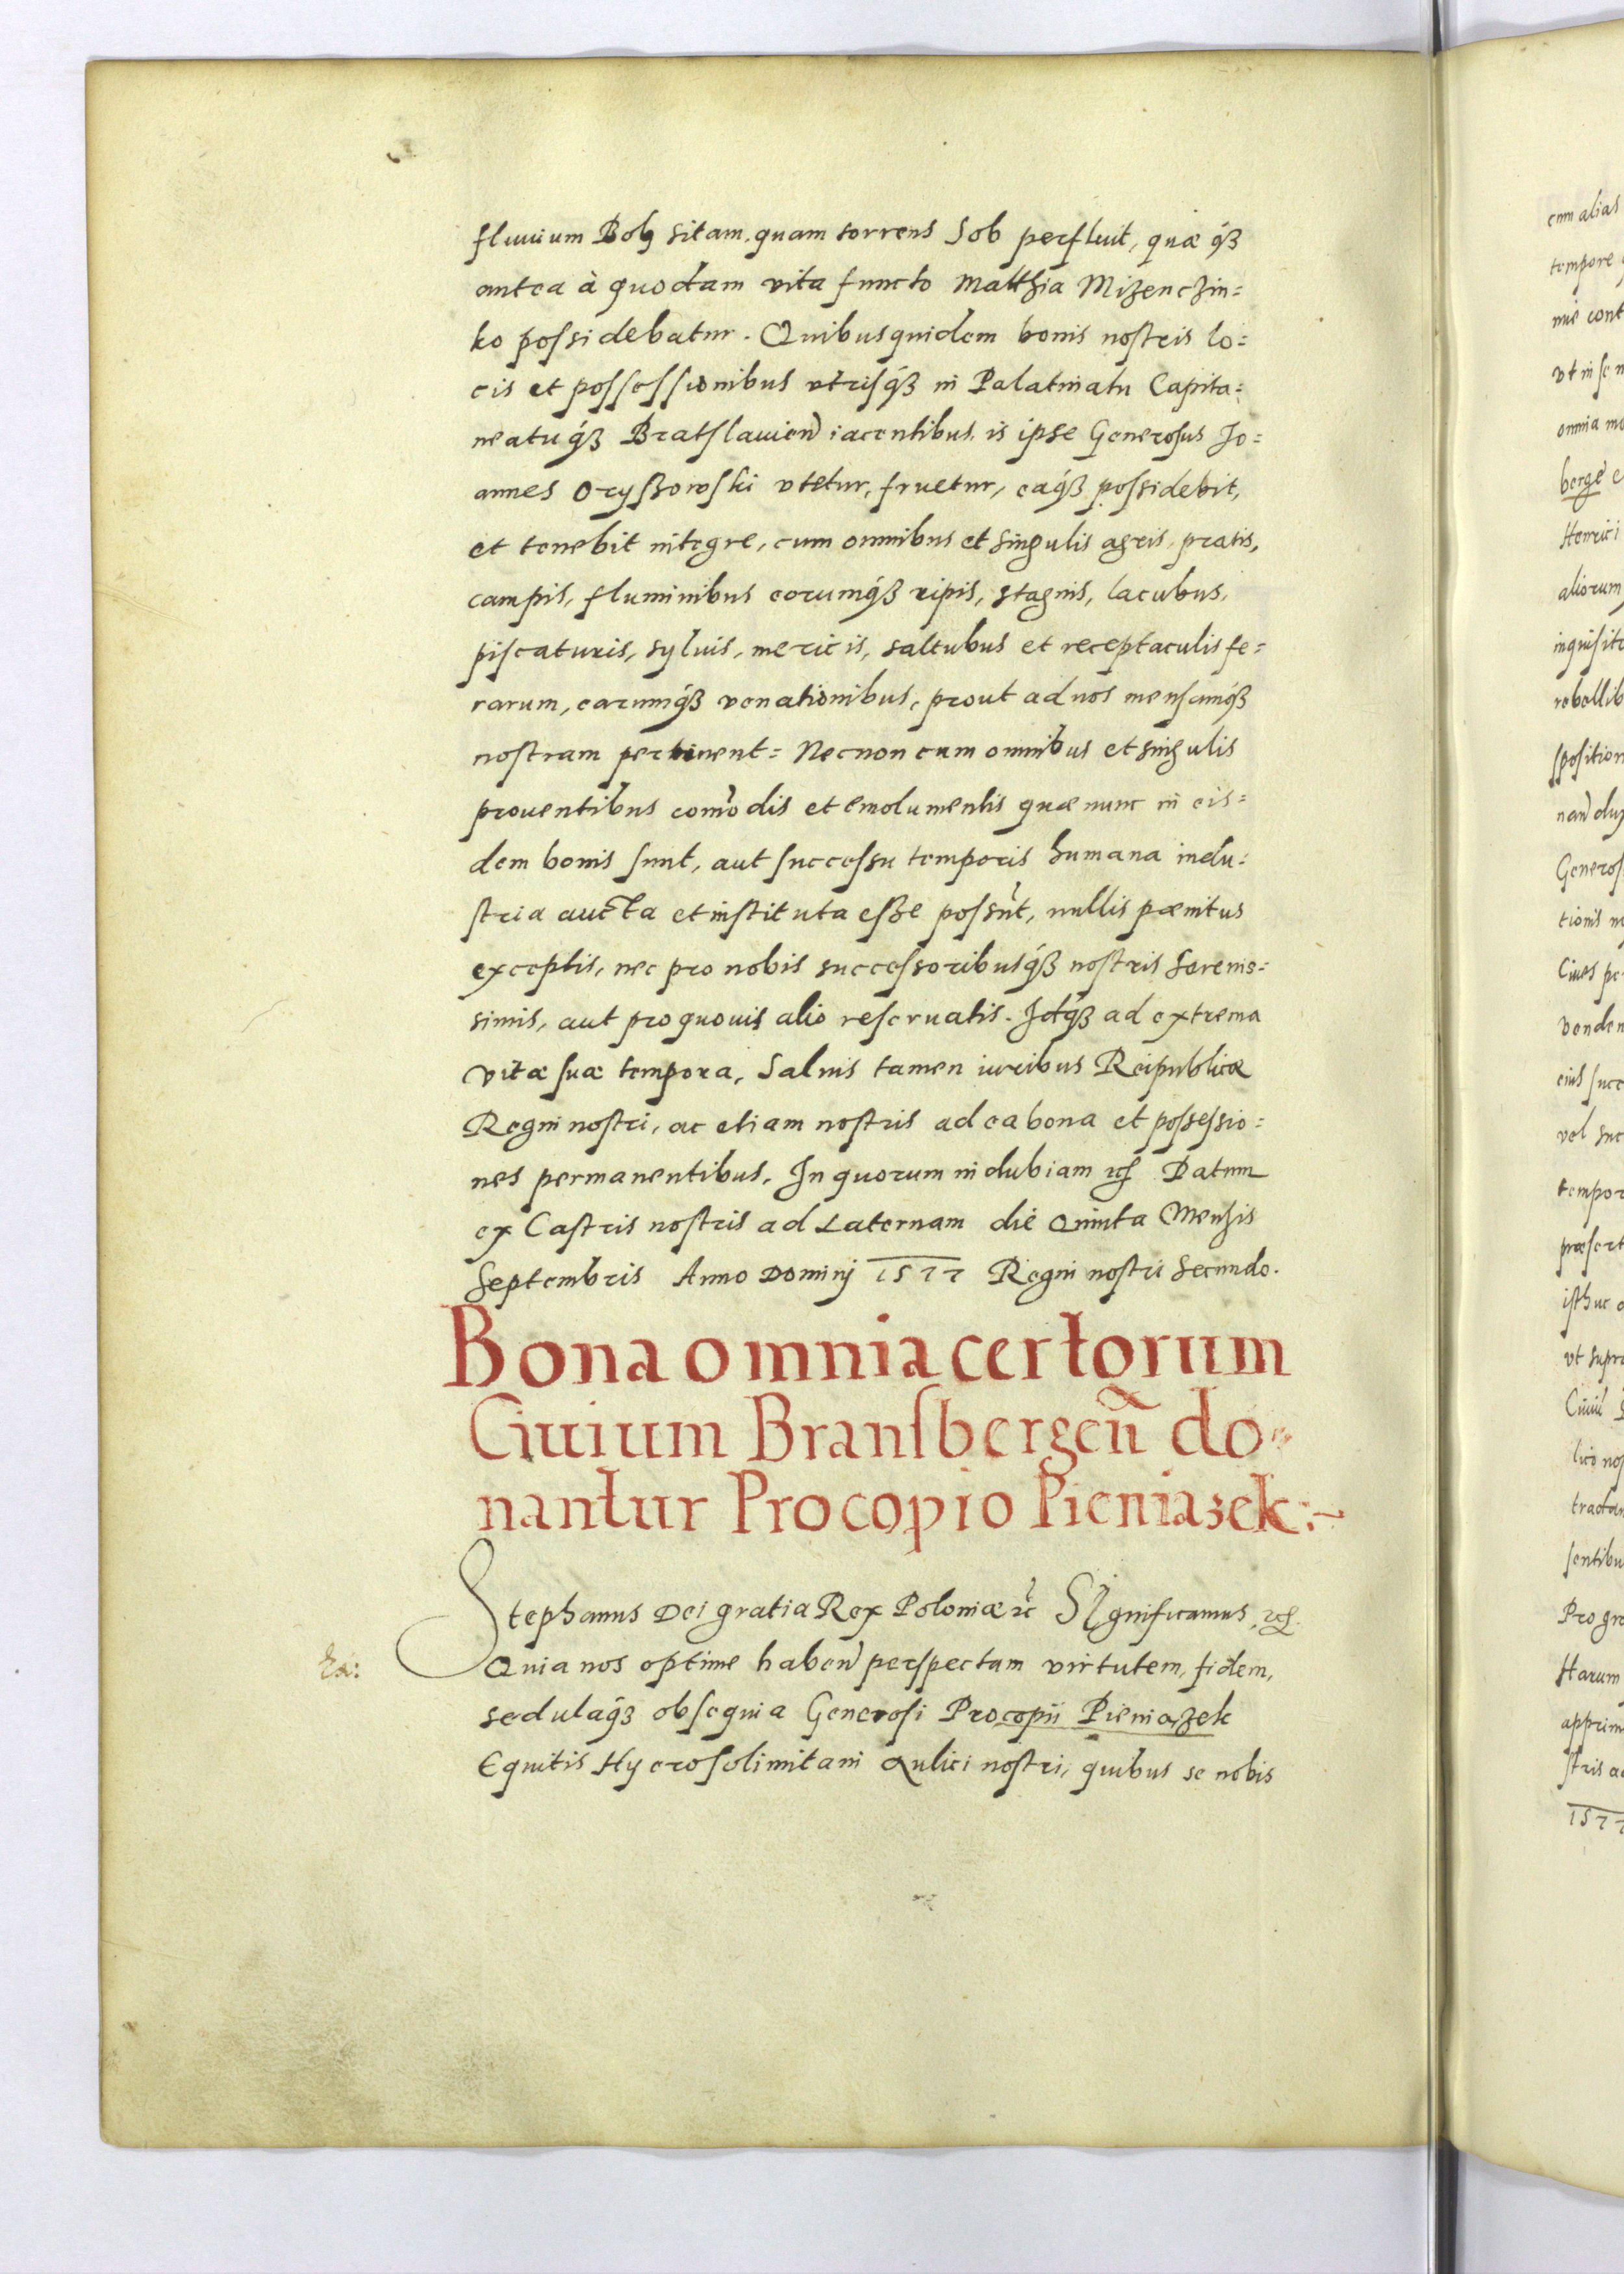 fluuium Boh sitam, quam torrens Sob perfluit, quæ q́ꝫ
antea à quodam vita functo Matthia Mizenczin=
ko possidebatur. Quibusquidem bonis nostris lo=
cis et possessionibus vtrisq́ꝫ in Palatinatu Capita=
neatuq́ꝫ Bratslauien̄ iacentibus, is ipse Generosus Jo=
annes Oryszowski vtetur, fruetur, eaq́ꝫ possidebit,
et tenebit integre, cum omnibus et singulis agris, pratis,
campis, fluminibus eorumq́ꝫ ripis, stagnis, lacubus,
piscaturis, syluis, mericis, saltubus et receptaculis fe=
rarum, earumq́ꝫ venationibus, prout ad nos mensamq́ꝫ
nostram pertinent= Necnon cum omnibus et singulis
prouentibus com̄odis et emolumentis quæ nunc in eis=
dem bonis sunt, aut successu temporis humana indu=
stria aucta et instituta esse possūnt, nullis pænitus
exceptis, nec pro nobis successoribusq́ꝫ nostris Serenis=
simis, aut pro quouis alio reseruatis. Idq́ꝫ ad extrema
vitæ suæ tempora, Saluis tamen iuribus Reipublicæ
Regni nostri, ac etiam nostris ad ea bona et possessio=
nes permanentibus. In quorum indubiam etc̃ Datum
ex Castris nostris ad Laternam die Quinta Mensis
Septembris Anno Dominj 1577 Regni nostri Secundo.
Bona omnia certorum
Ciuium Bransbergen̄ do=
nantur Procopio Pieniazek:~
Stephanus Dei gratia Rex Poloniæ etc̃ Significamus, etc̃.
Quia nos optime haben̄ perspectam virtutem, fidem,
sedulaq́ꝫ obsequia Generosi Procopii Pieniazek
Equitis Hyerosolimitani Aulici nostri, quibus se nobis
cum alias
tempore
ut in
omnia
berge
Henrici
aliorum
rebellib
Generos
tionis
Ciues
venden
eius succ
vel suc
tempor
ut supra
lico nos
sentibu
Pro gra
Harum
stris
1577